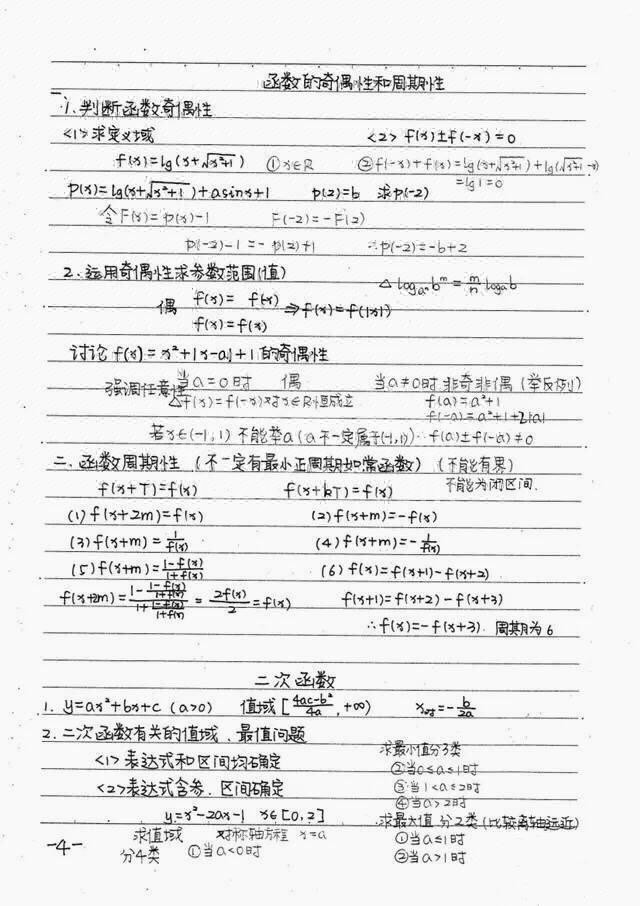 函数的奇偶性和周期性
1.判断函数奇偶性
<1>求定义域 <2> f(x)±f(-x)=0
f(x)=lg(x+√(x²+1)) ①x∈R ②f(-x)+f(x)=lg(x+√(x²+1))+lg(√(x²+1)-x)
=lg1=0
p(x)=lg(x+√(x²+1))+asinx+1 p(2)=b 求p(-2)
令F(x)=p(x)-1 F(-2)=-F(2)
p(-2)-1=-p(2)+1 ∴p(-2)=-b+2
2.运用奇偶性求参数范围(值) △ log_{aⁿ}b^m=\frac{m}{n}log_a b
偶 f(x)= f(-x) ⇒f(x)=f(|x|)
f(x)=f(x)
讨论f(x)=x²+|x-a|+1的奇偶性
当a=0时 偶 当a≠0时 非奇非偶(举反例)
强调任意性 △f(x)=f(-x)对x∈R恒成立 f(a)=a²+1
f(-a)=a²+1+2|a|
若x∈(-1,1)不能举a(a不一定属于(-1,1))∴f(a)±f(-a)≠0
二.函数周期性(不一定有最小正周期如常函数)(不能有界)
f(x+T)=f(x) f(x+kT)=f(x) 不能为闭区间.
(1)f(x+2m)=f(x) (2)f(x+m)=-f(x)
(3)f(x+m)=\frac{1}{f(x)} (4)f(x+m)=-\frac{1}{f(x)}
(5)f(x+m)=\frac{1-f(x)}{1+f(x)} (6)f(x)=f(x+1)-f(x+2)
f(x+2m)=\frac{1-\frac{1-f(x)}{1+f(x)}}{1+\frac{1-f(x)}{1+f(x)}}=\frac{2f(x)}{2}=f(x) f(x+1)=f(x+2)-f(x+3)
∴f(x)=-f(x+3).周期为6
二次函数
1. y=ax²+bx+c (a>0) 值域[\frac{4ac-b²}{4a},+∞) x_{对}=-\frac{b}{2a}
2.二次函数有关的值域、最值问题
<1>表达式和区间均确定
<2>表达式含参.区间确定
y=x²-2ax-1 x∈[0,2]
求值域 对称轴方程 x=a
分4类 ①当a<0时
求最小值分3类
②当0≤a≤1时
③当1<a≤2时
④当a>2时
求最大值 分2类(比较离轴远近)
①当a≤1时
②当a>1时
-4-